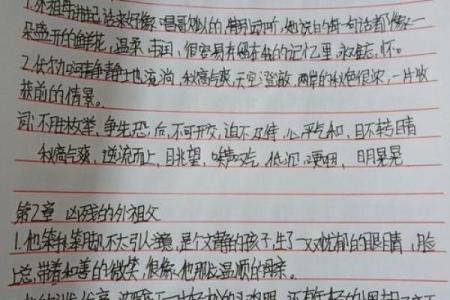 1.外祖母讲起话来好像唱歌似的,特别动听,她说的每一句话都像一
朵盛开的鲜花,温柔,甜润,很容易留在我的记忆里,永难忘怀。
2.伏尔加河静静地流淌,秋高气爽,天空澄澈,两岸的秋色很浓,一片收
获前的情景。
词:不胜枚举,争先恐后,不可开交,迫不及待,心平气和,目不转睛
秋高气爽,逆流而上,眺望,嗓音,低沉,哽咽,明晃晃
第2章 凶残的外祖父
1.他笨拙
不太引人注意,是个文静的孩子,生了一双忧郁的眼睛,脸
上总带着和善的微笑,很像他那温顺的母亲。